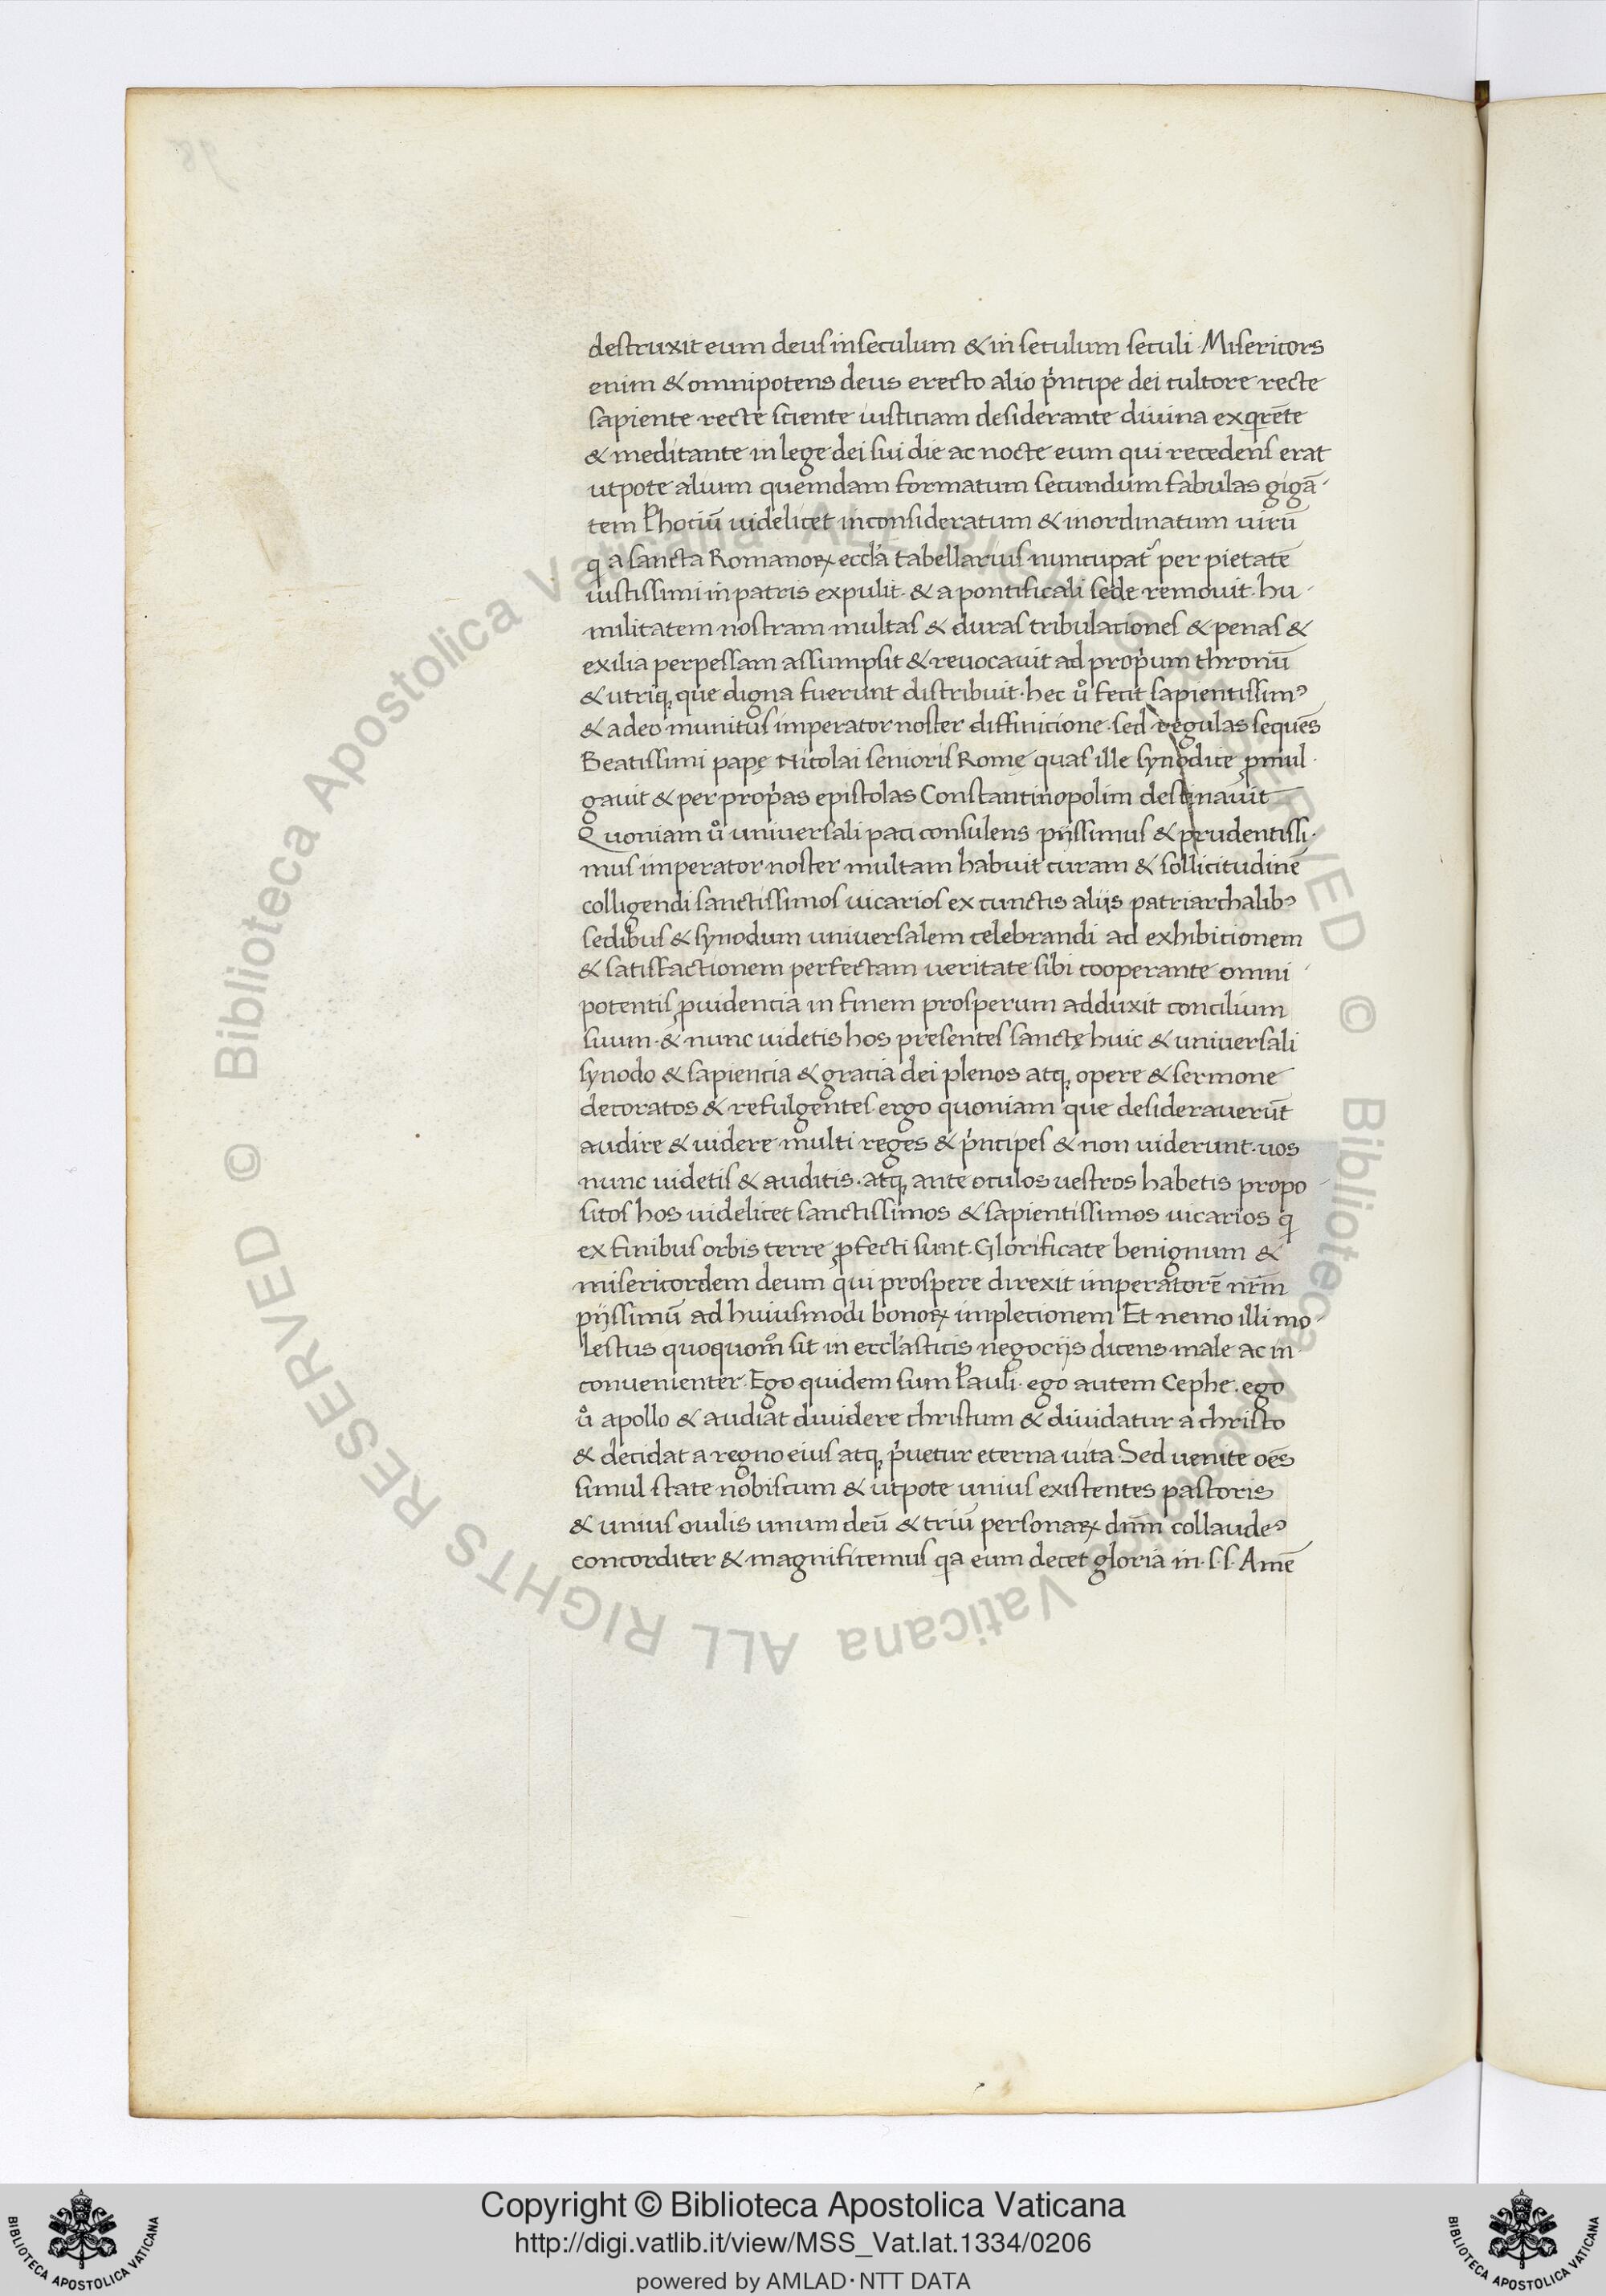 destruxit eum deus in seculum & in seculum seculi. Misericors
enim & omnipotens deus erecto alio p͛ncipe dei cultore recte
sapiente recte sciente iusticiam desiderante divina exq̄rēte
& meditante in lege dei sui die ac nocte eum qui recedens erat
utpote alium quemdam formatum secundum fabulas gigā-
tem Photiū uidelicet inconsideratum & inordinatum uirū
q̄ a sancta Romanoꝝ eccl̓a tabellarius nuncupat᷑ per pietatē
iustissimi inpatris expulit. & a pontificali sede remouit. hu-
militatem nostram multas & duras tribulationes & penas &
exilia perpessam assumpsit & reuocauit ad prop̓um thronū
& utriq̨ que digna fuerunt distribuit. hec u̔ fecit sapientissimꝰ
& a deo munitus imperator noster diffinicione. sed regulas sequēs
Beatissimi papę Nicolai senioris Romę quas ille synodice ꝓmul-
gauit & per prop̓as epistolas Constantinopolim destinauit
Quoniam u̔ uniuersali paci consulens pijssimus & prudentissi-
mus imperator noster multam habuit curam & sollicitudinē
colligendi sanctissimos uicarios ex cunctis alijs patriarchalibꝰ
sedibus & synodum uniuersalem celebrandi ad exhibicionem
& satisfactionem perfectam ueritate sibi cooperante omni-
potentis ꝓuidencia in finem prosperum adduxit concilium
suum. & nunc uidetis hos presentes sanctę huic & uniuersali
synodo & sapiencia & gracia dei plenos atq̨ opere & sermone
decoratos & refulgentes. ergo quoniam que desiderauerūt
audire & uidere multi reges & p͛ncipes & non uiderunt. uos
nunc uidetis & auditis. atq̨ ante oculos uestros habetis propo-
sitos hos uidelicet sanctissimos & sapientissimos uicarios q͛
ex finibus orbis terre ꝓfecti sunt. Glorificate benignum &
misericordem deum qui prospere direxit imperatorē nr̄m
pijssimū ad huiusmodi bonoꝝ implecionem Et nemo illi mo-
lestus quoquom̊ sit in eccl̓asticis negocijs dicens male ac in
conuenienter. Ego quidem sum Pauli. ego autem Cephe. ego
u̔ apollo & audiat diuidere christum & diuidatur a christo
& decidat a regno eius atq̨ p͛uetur eterna uita. Sed uenite oēs
simul state nobiscum & utpote unius existentes pastoris
& unius ouilis unum deū & triū personaꝝ dn̄m collaudeꝰ
concorditer & magnificemus qa eum decet gloria in. s. s. Amē
© Biblioteca Apostolica Vaticana ALL RIGHTS RESERVED © Biblioteca Apostolica Vaticana ALL RIGHTS RESERVED
BIBLIOTECA APOSTOLICA VATICANA
Copyright © Biblioteca Apostolica Vaticana
http://digi.vatlib.it/view/MSS_Vat.lat.1334/0206
powered by AMLAD·NTT DATA
BIBLIOTECA APOSTOLICA VATICANA